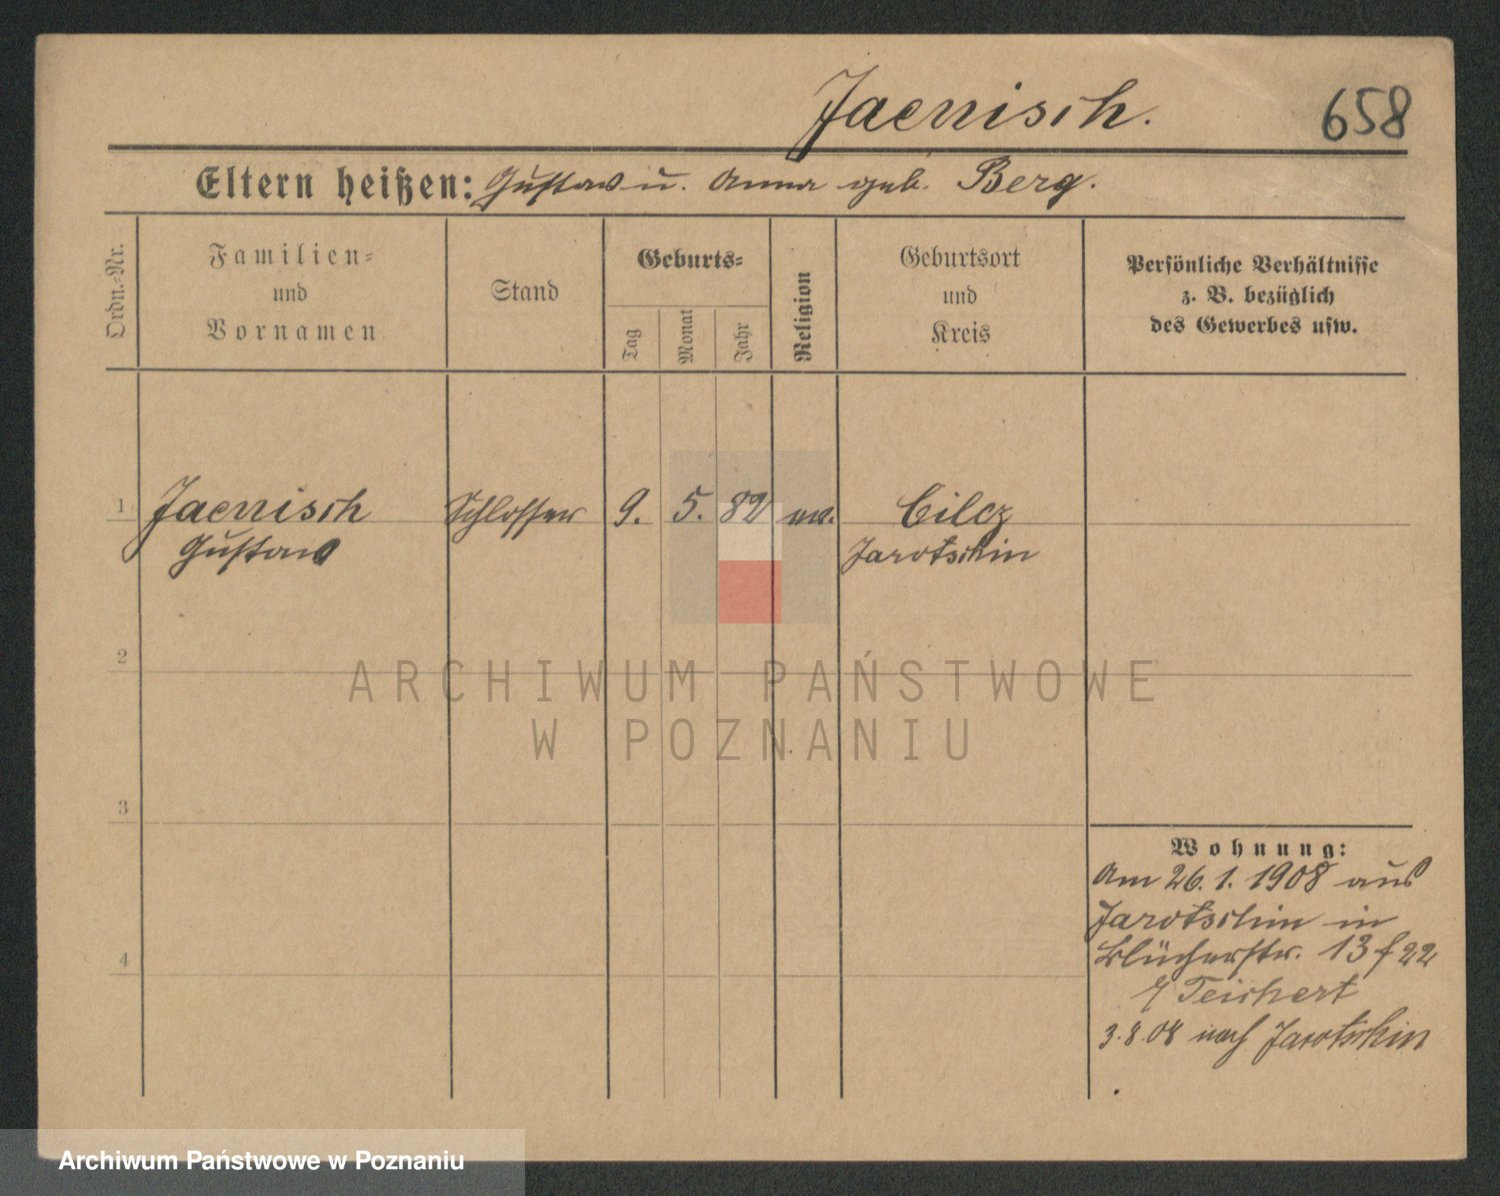 Jaenisch.
658
Eltern heißen: Gustav u. Anna geb. Berg.
Ordn.-Nr.
Familien-
und
Vornamen
Stand
Geburts-
Tag
Monat
Jahr
Religion
Geburtsort
und
Kreis
Persönliche Verhältnisse
z. B. bezüglich
des Gewerbes usw.
1 Jaenisch Schlosser 9. 5. 82 ev. Cilcz
Gustav Jarotschin
2
ARCHIWUM PAŃSTWOWE
W POZNANIU
3
Wohnung:
Am 26.1.1908 aus
Jarotschin in
Blücherstr. 13 f 22
4
Teichert
3.8.08 nach Jarotschin
Archiwum Państwowe w Poznaniu